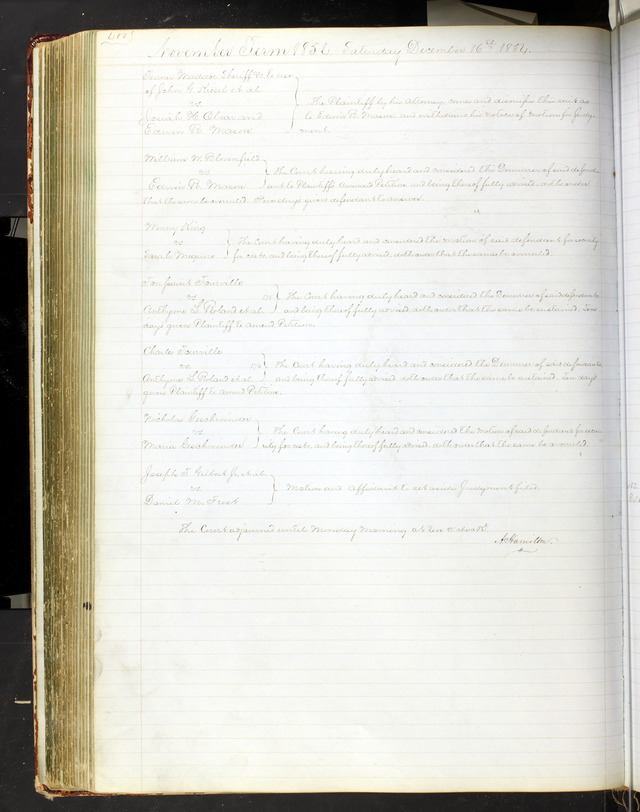 November Term 1854 Saturday December 16th 1854.
of John G. et al
vs
Josiah H. and
Edwin R. Mason
The Plaintiff by his Attorney comes and dismisses this suit as
to Edwin R. Mason and withdraws his motion for judg-
ment.
William W. Bloomfield
vs
Edwin R. Mason
The Court having duly heard and considered the Demurrer of said defend-
ant to Plaintiffs Amended Petition and being thereof fully advised, doth order
that the same be overruled. days given defendant to answer.
King
vs
Sarah Maguire
The Court having duly heard and considered the motion of said defendant for security
for costs and being thereof fully advised, doth order that the same be overruled.
Tourville
vs
L. Roland et al
The Court having duly heard and considered the Demurrer of said defendants
and being thereof fully advised, doth order that the same be sustained. Ten
days given Plaintiff to amend Petition.
Charles Tourville
vs
L. Roland et al
The Court having duly heard and considered the Demurrer of said defendants
and being thereof fully advised, doth order that the same be sustained. Ten days
given Plaintiff to amend Petition.
Nicholas
vs
Maria
The Court having duly heard and considered the motion of said defendant for secu-
rity for costs, and being thereof fully advised, doth order that the same be overruled.
Joseph T. et al
vs
Daniel M. Frost
Motion and Affidavit to set aside Judgment filed.
The Court adjourned until Monday Morning at ten o'clock.
A. Hamilton.